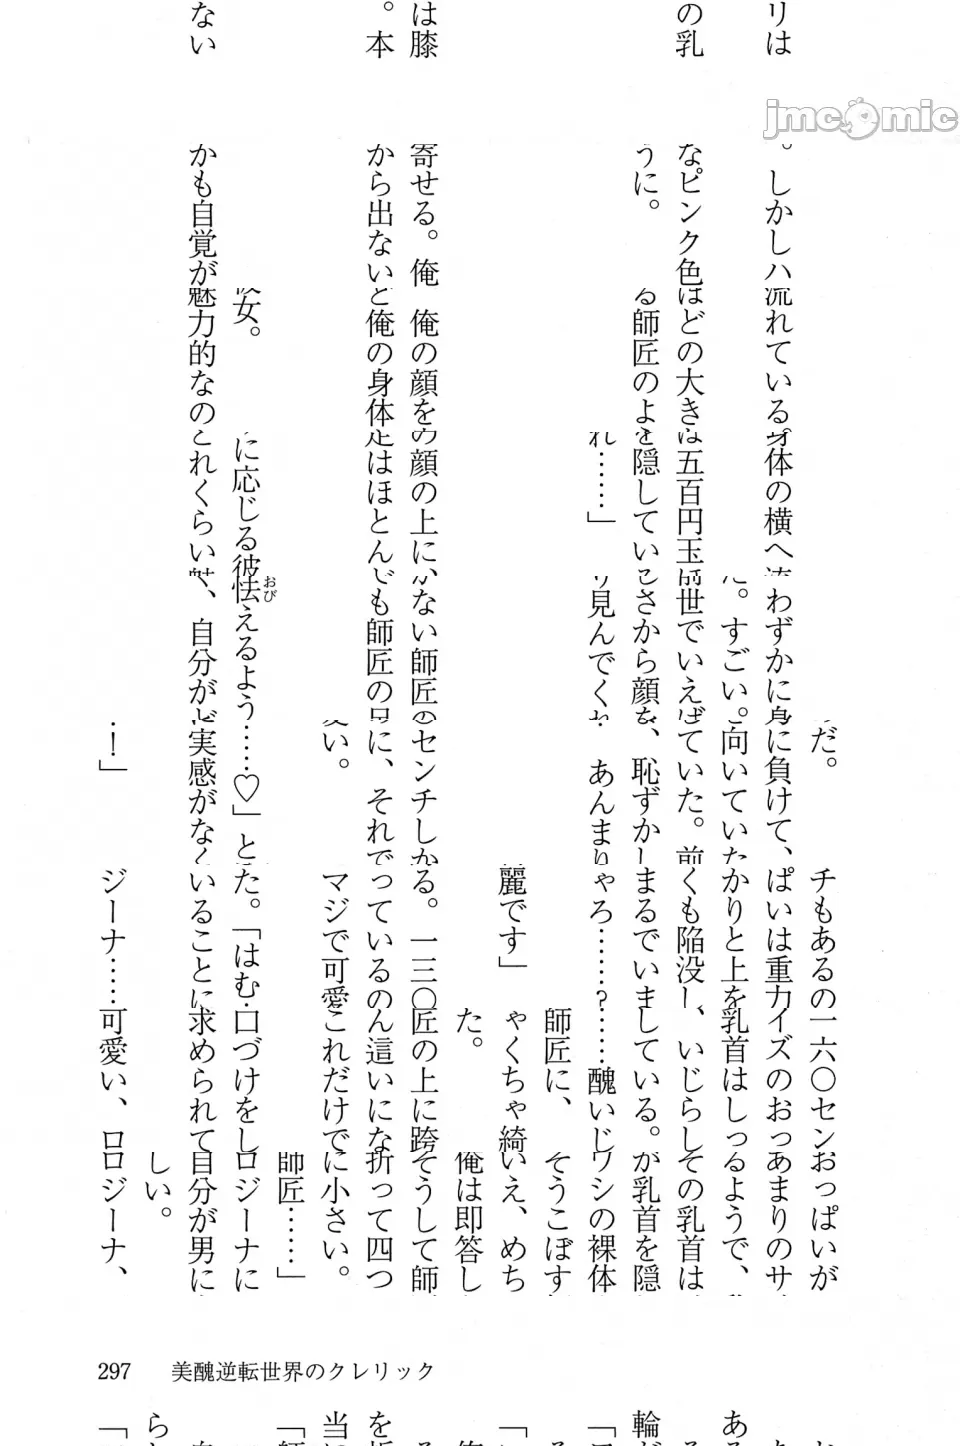 jmcomic
だ。チもあるの一六〇センおっぱいが
リは。しかしハ流れている身体の横へわずかに身に負けて、ぱいは重力イズのおっあまりのサ
。すごい。向いていたかりと上を乳首はしっるようで、
の乳なピンク色ほどの大きは五百円玉前世でいえばていた。前くも陥没し、いじらしその乳首は
うに。る師匠のよを隠していしさから顔を、恥ずかしまるでいましている。が乳首を隠
れ……」見んでくれあんまりゃろ……?……醜いじワシの裸体
師匠に、そうこぼす
麗です」ゃくちゃ綺いえ、めち
た。俺は即答し
は膝寄せる。俺俺の顔をの顔の上に、かない師匠のセンチしかる。一三〇匠の上に跨そうして師
。本から出ないと俺の身体足はほとんでも師匠のに、それでっているのん這いにな折って四つ
い。マジで可愛これだけでに小さい。
師匠……」
彼女。に応じる彼怯えるよう……♡」とた。「はむ口づけをしロジーナに
おび
ないかも自覚が魅力的なのこれくらい、自分がど実感がなくいることに求められて自分が男に
しい。
！」ジーナ……可愛い、ロロジーナ、
297 美醜逆転世界のクレリック